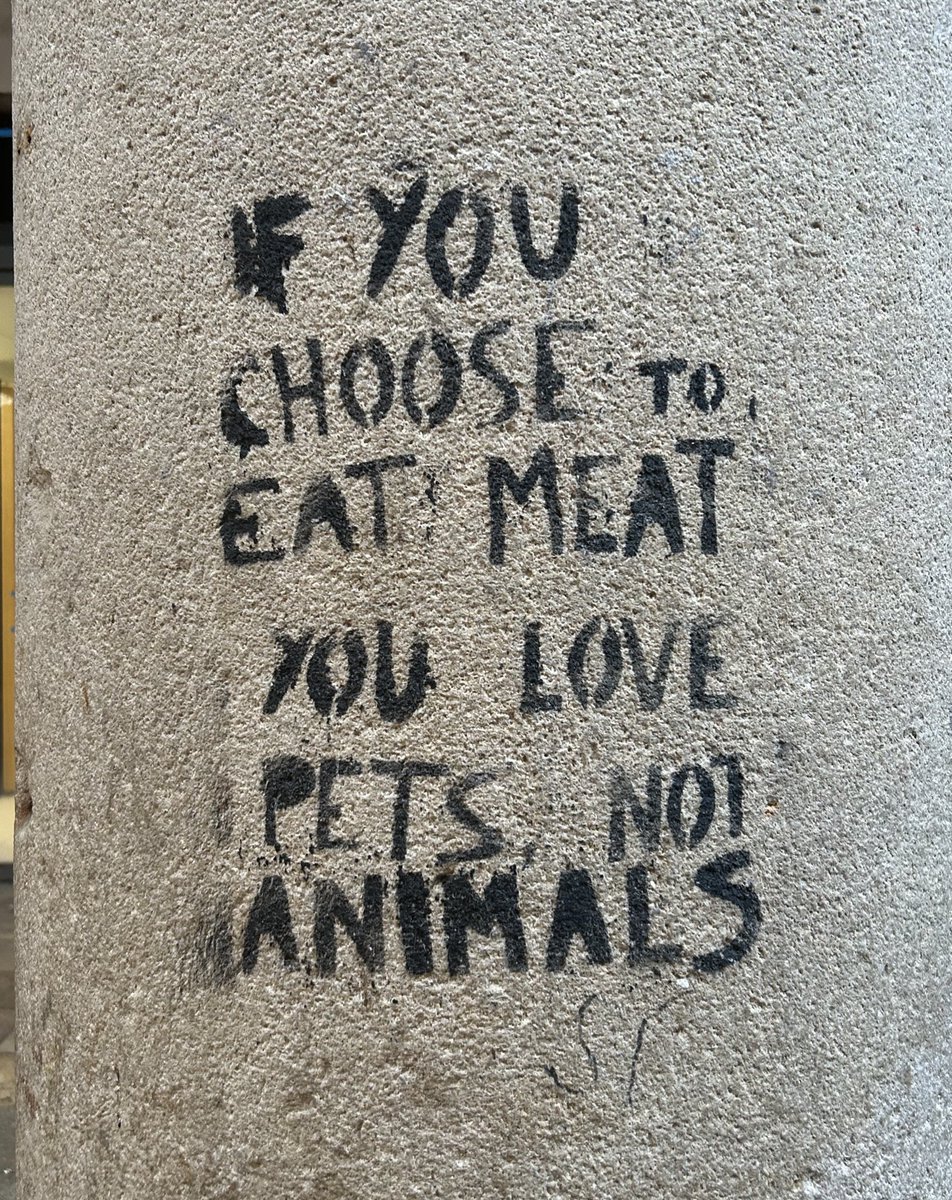 IF YOU
CHOOSE TO
EAT MEAT
YOU LOVE
PETS, NOT
ANIMALS